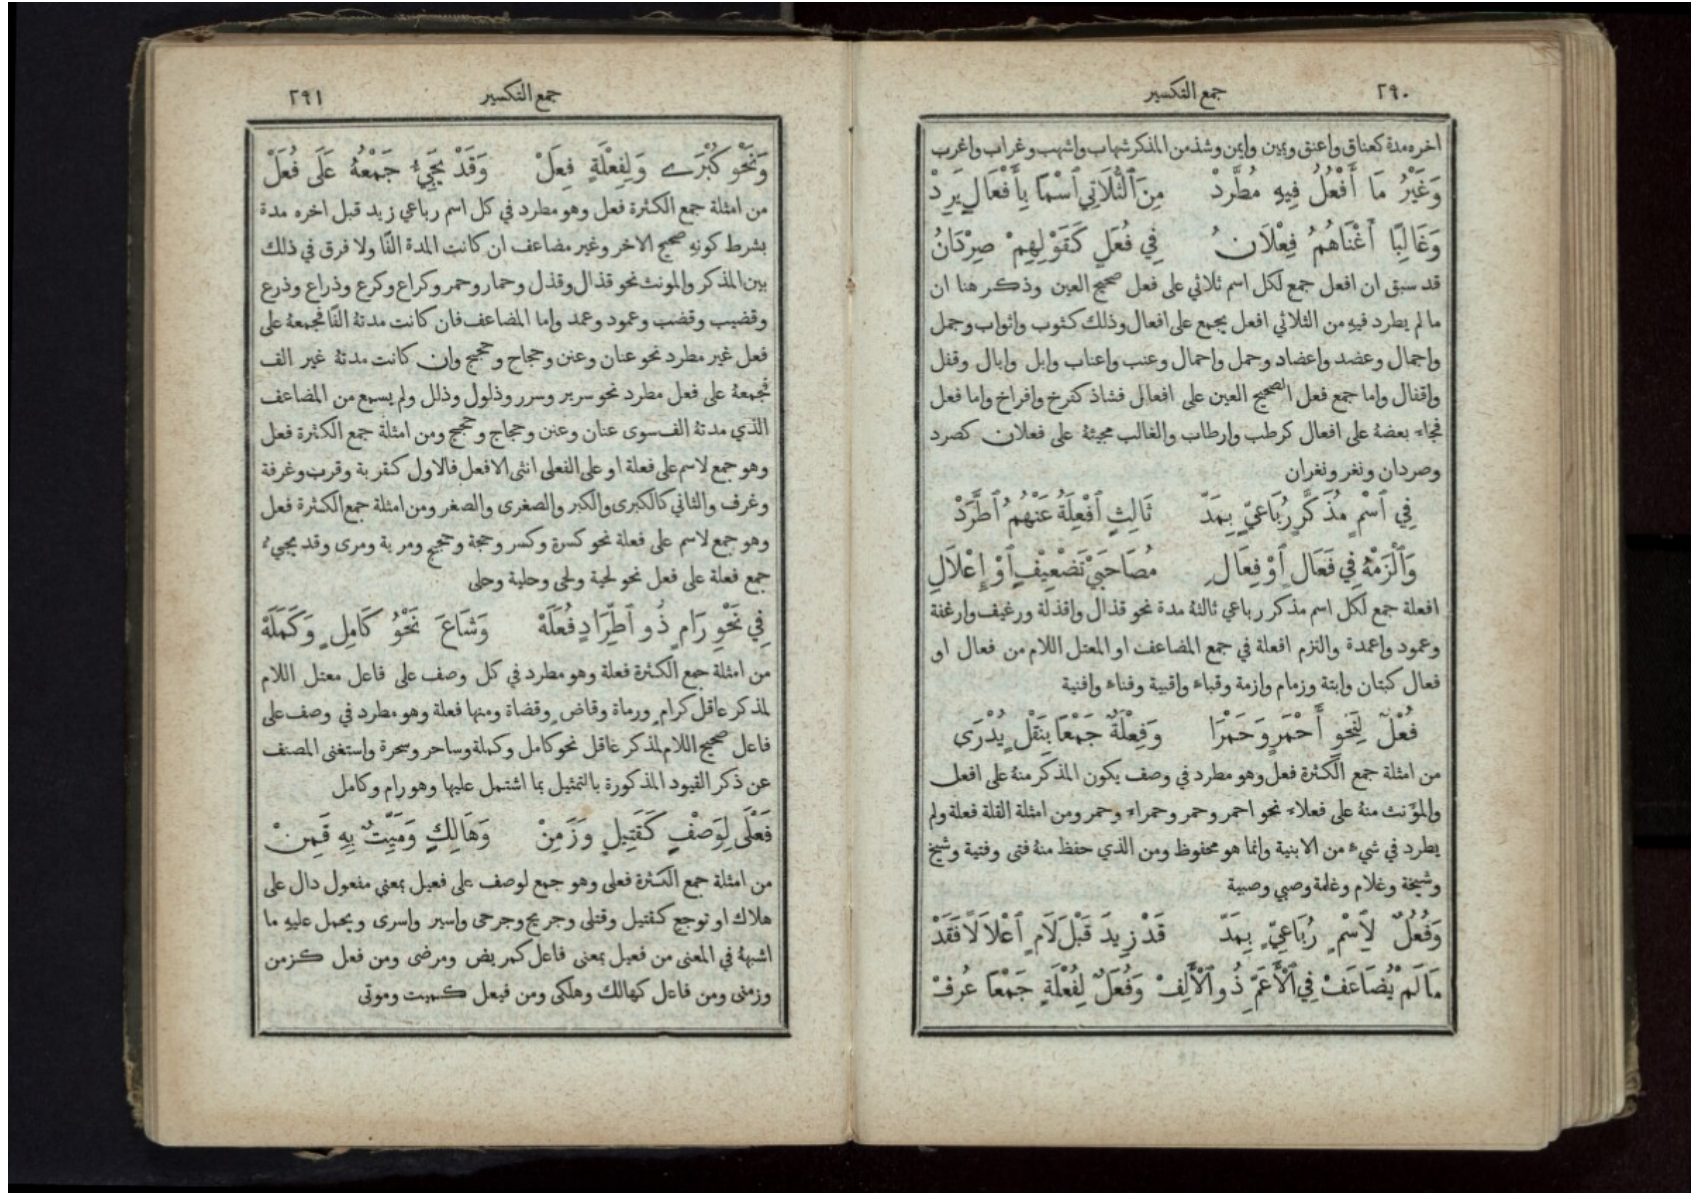 ٢٩٠ جمع التكسير
اخره مدة كعناق واعنق ويمين وايمن وشذ من المذكر شهاب واشهب وغراب واغرب
وَغَيْرُ مَا أَفْعُلُ فِيهِ مُطَّرِدْ مِنَ ٱلثُّلَاثِي ٱسْمًا بِأَفْعَالٍ يَرِدْ
وَغَالِبًا أَغْنَاهُمُ فِعْلَانُ فِي فُعَلٍ كَقَوْلِهِمْ صِرْدَانُ
قد سبق ان افعل جمع لكل اسم ثلاثي على فعل صحيح العين وذكر هنا ان
ما لم يطرد فيهِ من الثلاثي افعل يجمع على افعال وذلك كثوب واثواب وجمل
واجمال وعضد واعضاد وحمل واحمال وعنب واعناب وابل وابال وقفل
واقفال واما جمع فعل الصحيح العين على افعال فشاذ كفرخ وافراخ واما فعل
فجاء بعضهُ على افعال كرطب وارطاب والغالب مجيئهُ على فعلان كصرد
وصردان ونغر ونغران
فِي ٱسْمٍ مُذَكَّرٍ رُبَاعِيٍّ بِمَدّ ثَالِثٍ ٱفْعِلَةُ عَنْهُمُ ٱطَّرَدْ
وَٱلْزَمْهُ فِي فَعَالٍ ٱوْ فِعَالِ مُصَاحِبَيْ تَضْعِيفٍ ٱوْ إِعْلَالِ
افعلة جمع لكل اسم مذكر رباعي ثالثهُ مدة نحو قذال واقذلة ورغيف وارغفة
وعمود واعمدة والتزم افعلة في جمع المضاعف او المعتل اللام من فعال او
فعال كبتات وابتة وزمام وازمة وقباء واقبية وفناء وافنية
فُعْلٌ لِنَحْوِ أَحْمَرٍ وَحَمْرَا وَفِعْلَةٌ جَمْعًا بِنَقْلٍ يُدْرَى
من امثلة جمع الكثرة فعل وهو مطرد في وصف يكون المذكر منهُ على افعل
والمؤنث منهُ على فعلاء نحو احمر وحمر وحمراء وحمر ومن امثلة القلة فعلة ولم
يطرد في شيء من الابنية وانما هو محفوظ ومن الذي حفظ منهُ فتى وفتية وشيخ
وشيخة وغلام وغلمة وصبي وصبية
وَفُعُلٌ لِاسْمٍ رُبَاعِيٍّ بِمَدّ قَدْ زِيدَ قَبْلَ لَامٍ ٱعْلَالًا فَقَدْ
مَا لَمْ يُضَاعَفْ فِي ٱلْأَعَمِّ ذُو ٱلْأَلِفْ وَفُعَلٌ لِفُعْلَةٍ جَمْعًا عُرِفْ
جمع التكسير ٢٩١
وَنَحْوِ كُبْرَے وَلِفِعْلَةٍ فِعَلْ وَقَدْ يَجِيءُ جَمْعُهُ عَلَى فُعَلْ
من امثلة جمع الكثرة فعل وهو مطرد في كل اسم رباعي زيد قبل اخره مدة
بشرط كونهِ صحيح الاخر وغير مضاعف ان كانت المدة الفًا ولا فرق في ذلك
بين المذكر والمونث نحو قذال وقذل وحمار وحمر وكراع وكرع وذراع وذرع
وقضيب وقضب وعمود وعمد واما المضاعف فان كانت مدتهُ الفًا فجمعهُ على
فعل غير مطرد نحو عنان وعنن وحجاج وحجج وان كانت مدتهُ غير الف
فجمعهُ على فعل مطرد نحو سرير وسرر وذلول وذلل ولم يسمع من المضاعف
الذي مدتهُ الف سوى عنان وعنن وحجاج وحجج ومن امثلة جمع الكثرة فعل
وهو جمع لاسم على فعلة او على الفعلى انثى الافعل فالاول كقربة وقرب وغرفة
وغرف والثاني كالكبرى والكبر والصغرى والصغر ومن امثلة جمع الكثرة فعل
وهو جمع لاسم على فعلة نحو كسرة وكسر وحجة وحجج ومرية ومرى وقد يجيء
جمع فعلة على فعل نحو لحية ولحى وحلية وحلى
فِي نَحْوِ رَامٍ ذُو ٱطِّرَادٍ فُعَلَهْ وَشَاعَ نَحْوُ كَامِلٍ وَكَمَلَهْ
من امثلة جمع الكثرة فعلة وهو مطرد في كل وصف على فاعل معتل اللام
لمذكر عاقل كرامٍ ورماة وقاضٍ وقضاة ومنها فعلة وهو مطرد في وصف على
فاعل صحيح اللام لمذكر عاقل نحو كامل وكملة وساحر وسحرة واستغنى المصنف
عن ذكر القيود المذكورة بالتمثيل بما اشتمل عليها وهو رام وكامل
فَعْلَى لِوَصْفٍ كَقَتِيلٍ وَزَمِنْ وَهَالِكٍ وَمَيِّتٌ بِهِ قَمِنْ
من امثلة جمع الكثرة فعلى وهو جمع لوصف على فعيل بمعنى مفعول دال على
هلاك او توجع كقتيل وقتلى وجريح وجرحى واسير واسرى ويحمل عليهِ ما
اشبههُ في المعنى من فعيل بمعنى فاعل كمريض ومرضى ومن فعل كزمن
وزمنى ومن فاعل كهالك وهلكى ومن فيعل كميت وموتى